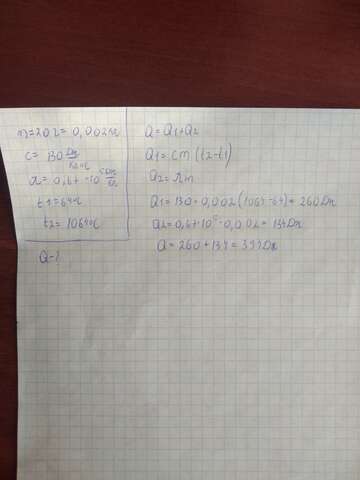 m=20г=0,002кг
c= 130 Дж/кг°C
λ= 0,67·10⁵ Дж/кг
t1=64°C
t2= 1064°C
Q-?
Q=Q1+Q2
Q1=cm(t2-t1)
Q2=λm
Q1=130·0,002(1064-64)=260Дж
Q2=0,67·10⁵·0,002=134Дж
Q=260+134=394Дж